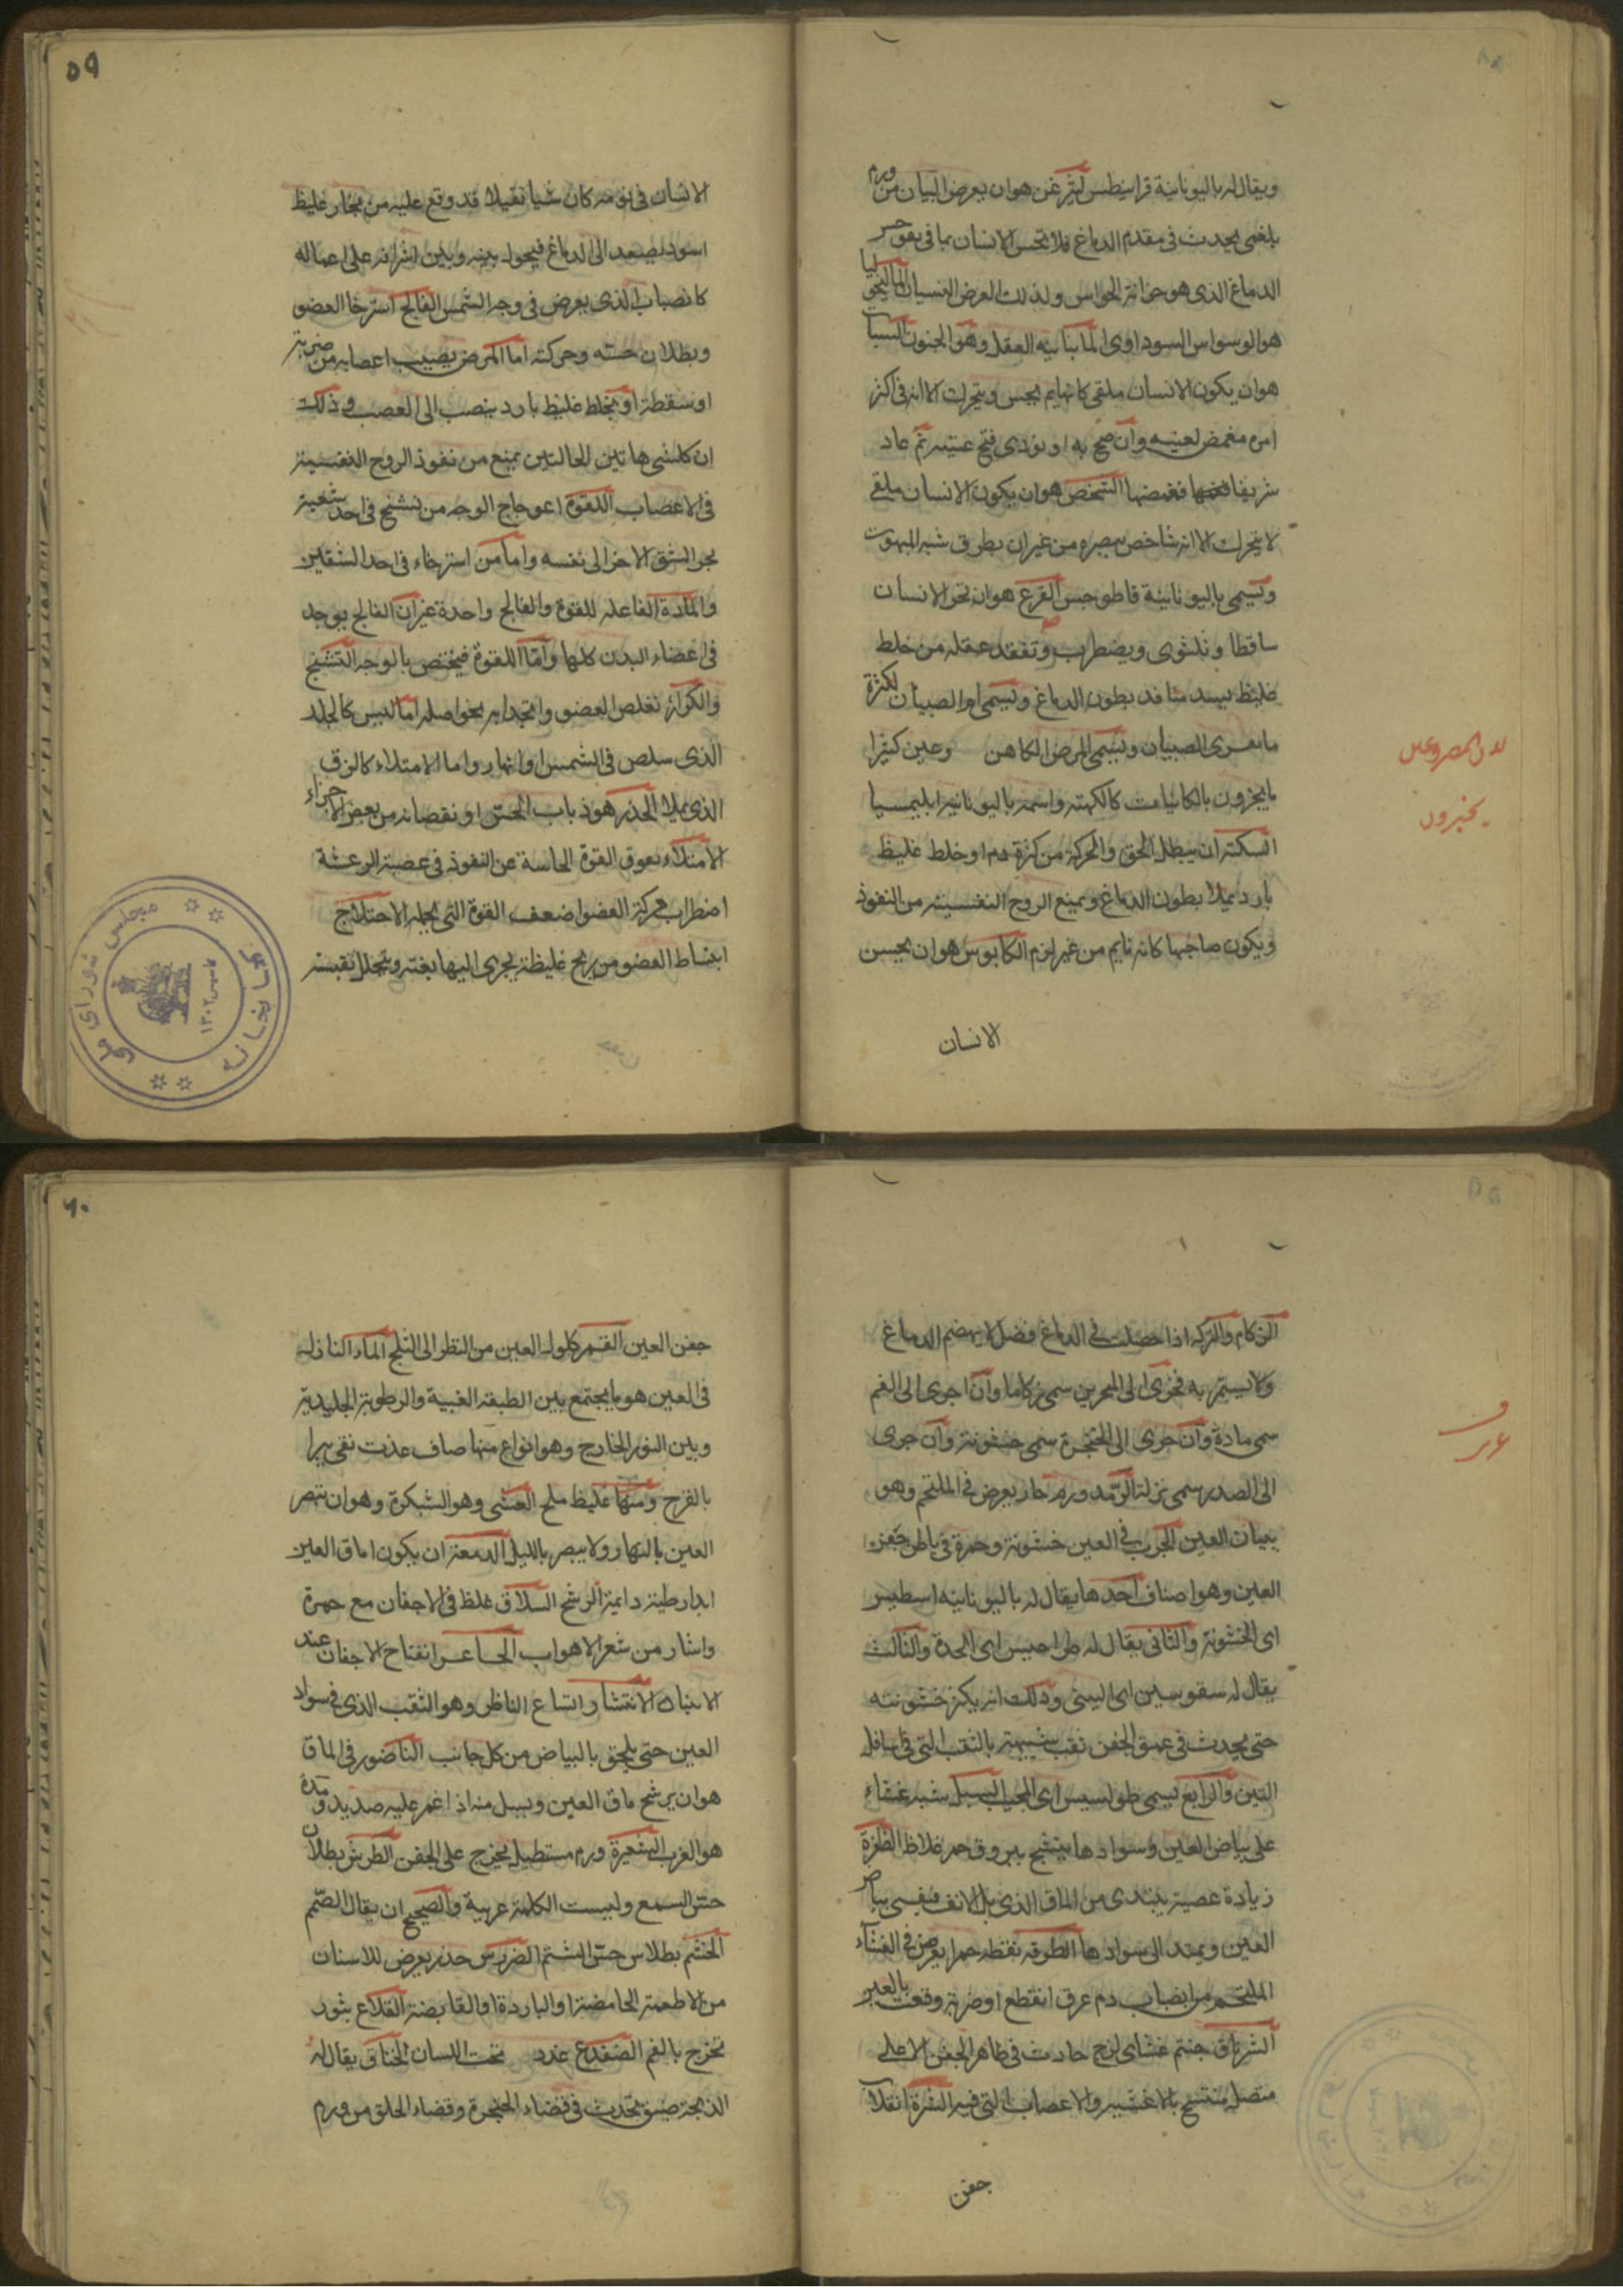 ويقال له باليونانية قرانيطس ليثرغس هو ان يعرض البيان من ورم
بلغمى يحدث فى مقدم الدماغ فلا يحس الانسان بما فى
الدماغ الذى هو خزانة الحواس ولذلك العرض النسيان الماليخوليا
هو الوسواس السوداوى المانيا تيه العقل وهو الجنون السبات
هو ان يكون الانسان ملقى كالنايم يحس ويتحرك الا انه فى اكثر
امره مغمض لعينيه وان صيح به او نودى فتح عينيه ثم عاد
سريعا فغمضها الشخص هو ان يكون الانسان ملقى
لا يتحرك الا انه شاخص ببصره من غير ان يطرق شبه المبهوت
وتسمى باليونانية قاطوخس الصرع هو ان يخر الانسان
ساقطا ويلتوى ويضطرب وتفقد عقله من خلط
غليظ يسد منافذ بطون الدماغ ويسمى ام الصبيان لكثرة
ما يعترى الصبيان ويسمى المرض الكاهن وعين كثيرا
ما يخبرون بالكاينات كالكهنة واسمه باليونانية ابليمسيا
السكتة ان يبطل الحس والحركة من كثرة دم او خلط غليظ
بارد يملا بطون الدماغ ويمنع الروح النفسية من النفوذ
ويكون صاحبها كانه نايم من غير نوم الكابوس هو ان يحس
الانسان
لان المصروعين
يخبرون
٥٩
الانسان فى نومه كان شيا ثقيلا قد وقع عليه من بخار غليظ
اسود يصعد الى الدماغ فيحول بينه وبين اشرافه على اعماله
كالضباب الذى يعرض فى وجه الشمس الفالج استرخا العضو
وبطلان حسه وحركته اما المرض يصيب اعصابه من ضربة
او سقطة او بخلط غليظ بارد ينصب الى العصب وذلك
ان كلتى هاتين الحالتين يمنع من نفوذ الروح النفسية
فى الاعصاب اللقوة اعوجاج الوجه من تشنج فى احد شقيه
يجر الشق الاخر الى نفسه واما من استرخاء فى احد الشقين
والمادة الفاعله للقوة والفالج واحدة غير ان الفالج يوجد
فى اعضاء البدن كلها واما اللقوة فيختص بالوجه التشنج
والكزاز تقلص العضو وانجذابه نحو اصله اما لليبس كالجلد
الذى يتقلص فى الشمس او النهار واما الامتلاء كالزق
الذى يملا الخدر هو ذهاب الحس او نقصانه من بعض الاجزاء
الامتلاء يعوق القوة الحاسة عن النفوذ فى عصبه الرعشة
اضطراب حركة العضو لضعف القوة التى تحمله الاختلاج
انبساط العضو من ريح غليظة يجرى اليها بغتة ويتحلل بقبسة
كتابخانه مجلس شورای ملی
تاسیس ١٣٠٢
الزكام والنزلة اذا حصلت فى الدماغ فضل لا يهضم الدماغ
ولا يستمر به فجرى الى المنخرين سمى زكاما وان جرى الى الفم
سمى مادة وان جرى الى الحنجرة سمى خشونة وان جرى
الى الصدر سمى نزلة الرمد ورم حار يعرض فى الملتحم وهو
بياض العين الجرب فى العين خشونة وحمرة فى باطن جفن
العين وهو اصناف احدها يقال له باليونانية اسطيس
اى الخشونة والثانى يقال له طراحيس اى الحدة والثالث
يقال له سقوسيس اى التينى وذلك انه يكثر خشونته
حتى يحدث فى عمق الجفن ثقب شبيهة بالثقب التى فى اسافل
التين والرابع يسمى طولسيس اى المحبب السبل شبه غشاء
على بياض العين وسوادها ينتسج بعروق حمر غلاظ الظفرة
زيادة عصبية يبتدى من الماق الذى يلى الانف فيغشى بياض
العين ويمتد الى سوادها الطرفه نقطه حمرا يعرض فى الغشاء
الملتحم من انصباب دم عرق انقطع او ضربة وقعت بالعين
الشرناق جسم غشاى لزج حادث فى ظاهر الجفن الاعلى
متصل منتسج بالاغشيه والاعصاب التى فيه الشترة انقلاب
جفن
٦٠
جفن العين القمر كلول العين من النظر الى الثلج الماء النازل
فى العين هو ما يجتمع بين الطبقة العنبية والرطوبة الجليدية
وبين النور الخارج وهو انواع منها صاف عذب نقى يبرا
بالقدح ومنها غليظ ملح العشى وهو الشبكرة وهو ان تبصر
العين بالنهار ولا يبصر بالليل الدمعة ان يكون اماق العين
ابدا رطبة دايمة الرشح السلاق غلظ فى الاجفان مع حمرة
وانتثار من شعر الاهداب الجسا عسر انفتاح الاجفان عند
الانتباه الانتشار اتساع الناظر وهو الثقب الذى فى سواد
العين حتى يلحق بالبياض من كل جانب الناصور فى الماق
هو ان يرشح ماق العين ويسيل منه اذا غمز عليه صديد ومدة
هو الغرب الشعيرة ورم مستطيل يخرج على الجفن الطرش بطلان
حس السمع وليست الكلمة عربية والصحيح ان يقال الصمم
الخشم بطلان حس الشم الضرس خدر يعرض للاسنان
من الاطعمة الحامضة او الباردة او القابضة القلاع بثور
تخرج بالفم الضفدع غدد تحت اللسان الخناق يقال له
الذبحة ضيق يحدث فى فضاء الحنجرة وفضاء الحلق من ورم